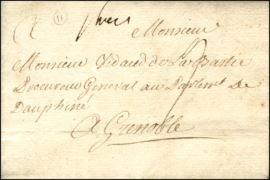 A
11
Monsieur
Monsieur Vidaud de La Batie
Procureur General au Parlemt de
Dauphiné
A Grenoble